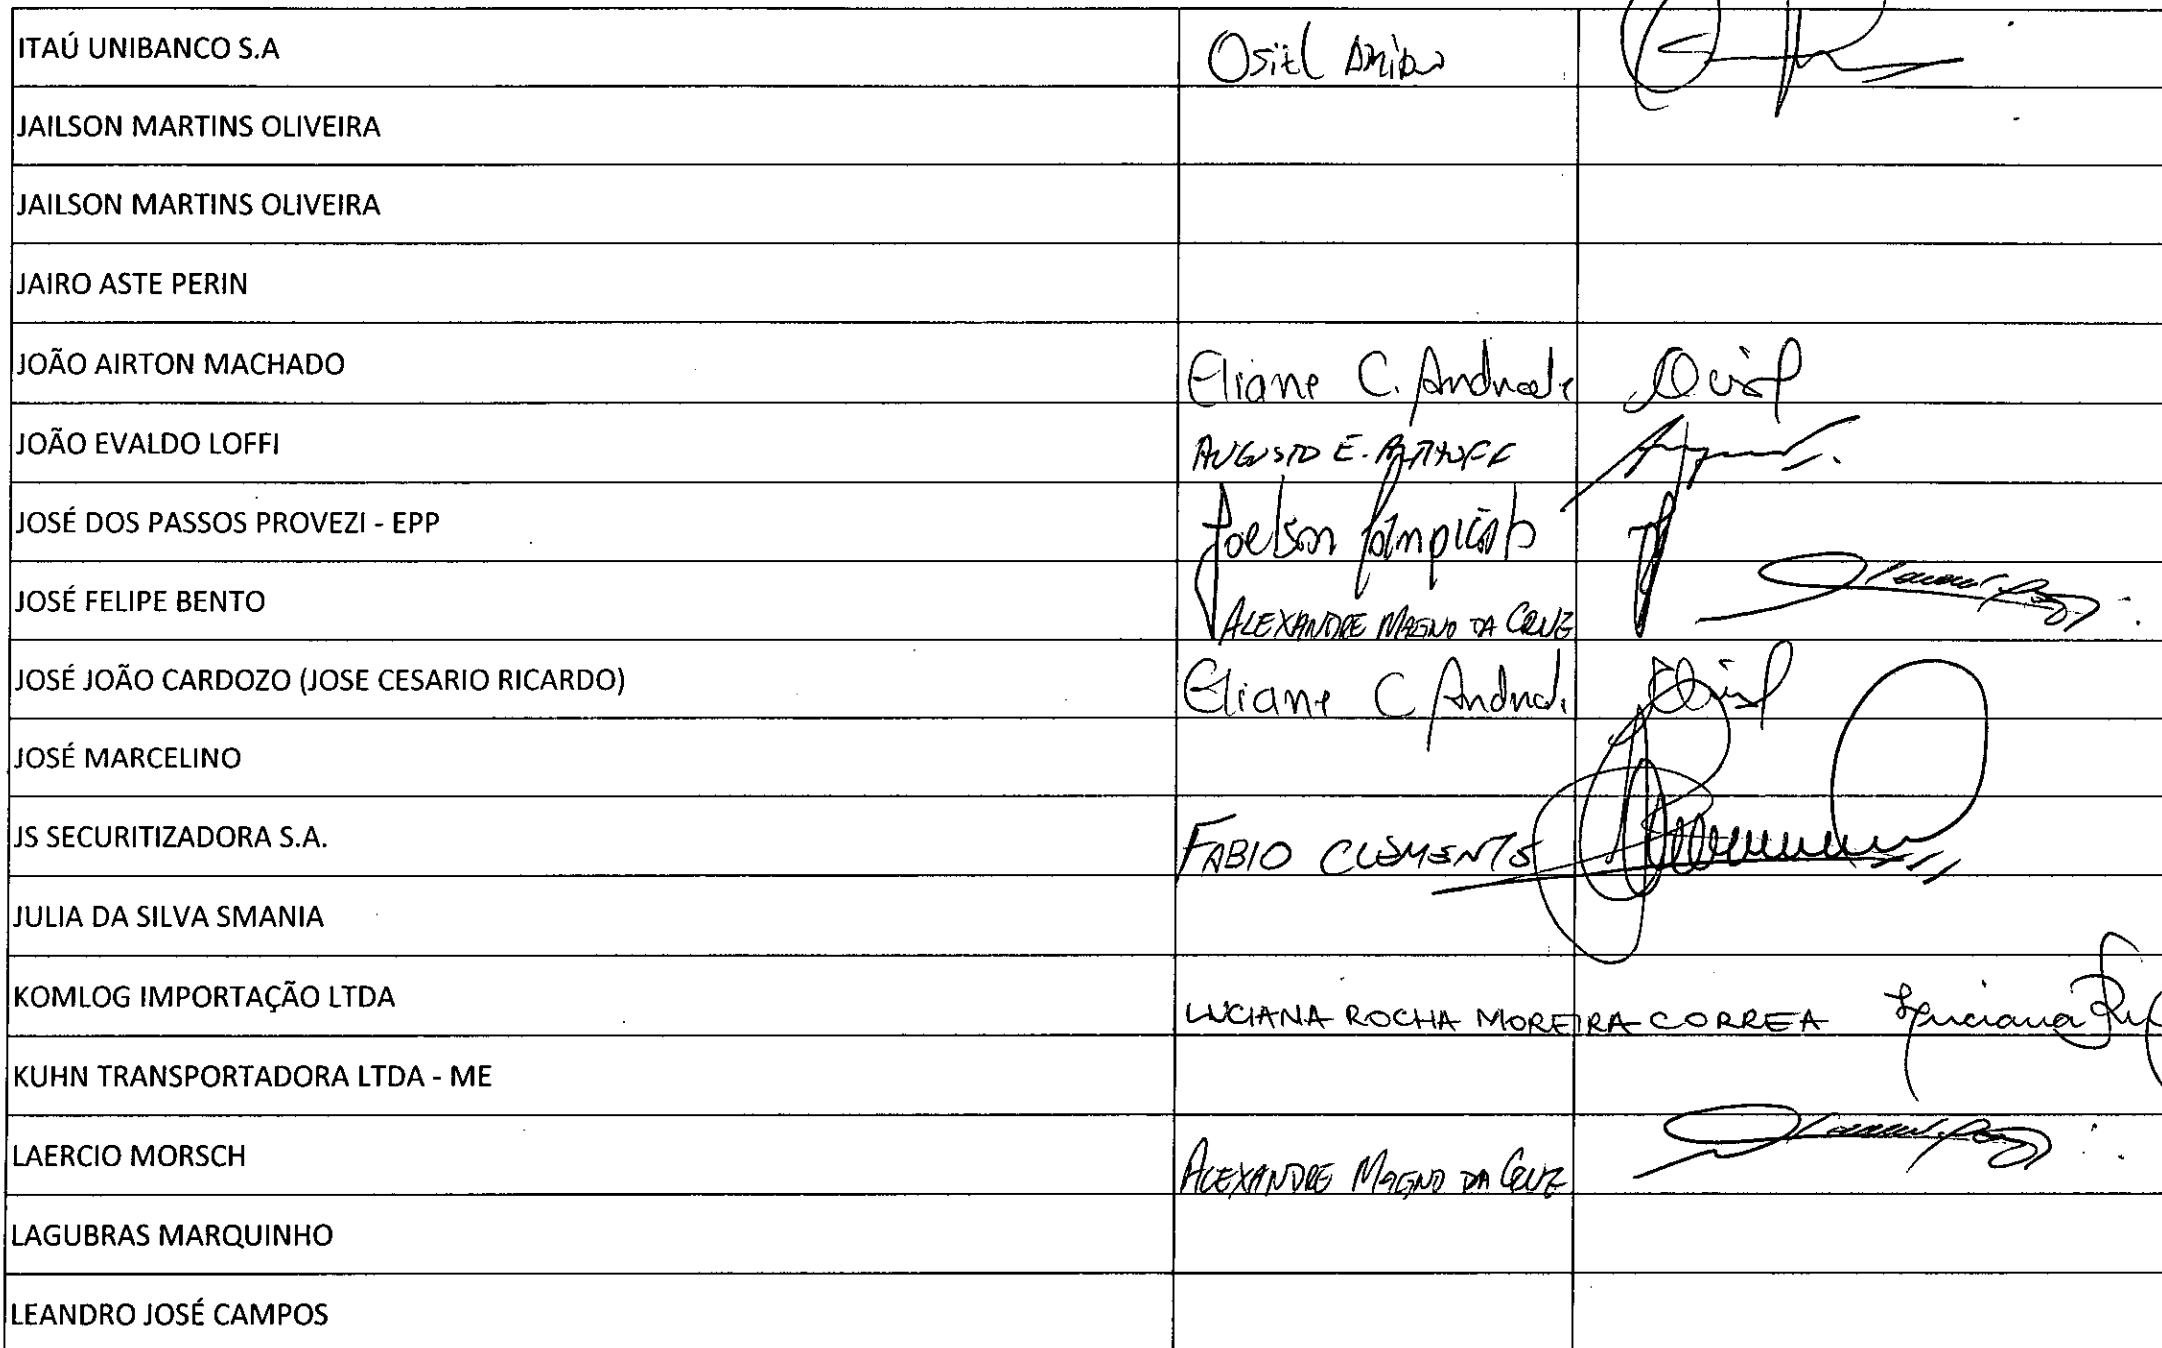 ITAÚ UNIBANCO S.A Osiel
JAILSON MARTINS OLIVEIRA
JAILSON MARTINS OLIVEIRA
JAIRO ASTE PERIN
JOÃO AIRTON MACHADO Eliane C. Andrade
JOÃO EVALDO LOFFI AUGUSTO E.
JOSÉ DOS PASSOS PROVEZI - EPP Joelson
JOSÉ FELIPE BENTO ALEXANDRE MAGNO DA CRUZ
JOSÉ JOÃO CARDOZO (JOSE CESARIO RICARDO) Eliane C Andrade
JOSÉ MARCELINO
JS SECURITIZADORA S.A. FABIO CLEMENTE
JULIA DA SILVA SMANIA
KOMLOG IMPORTAÇÃO LTDA LUCIANA ROCHA MOREIRA CORREA Luciana
KUHN TRANSPORTADORA LTDA - ME
LAERCIO MORSCH ALEXANDRE MAGNO DA CRUZ
LAGUBRAS MARQUINHO
LEANDRO JOSÉ CAMPOS